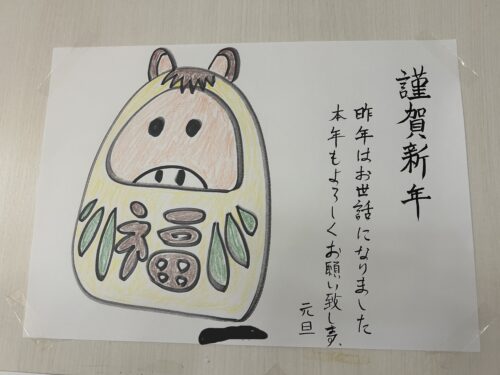 謹賀新年
昨年はお世話になりました
本年もよろしくお願い致します。
元旦
福